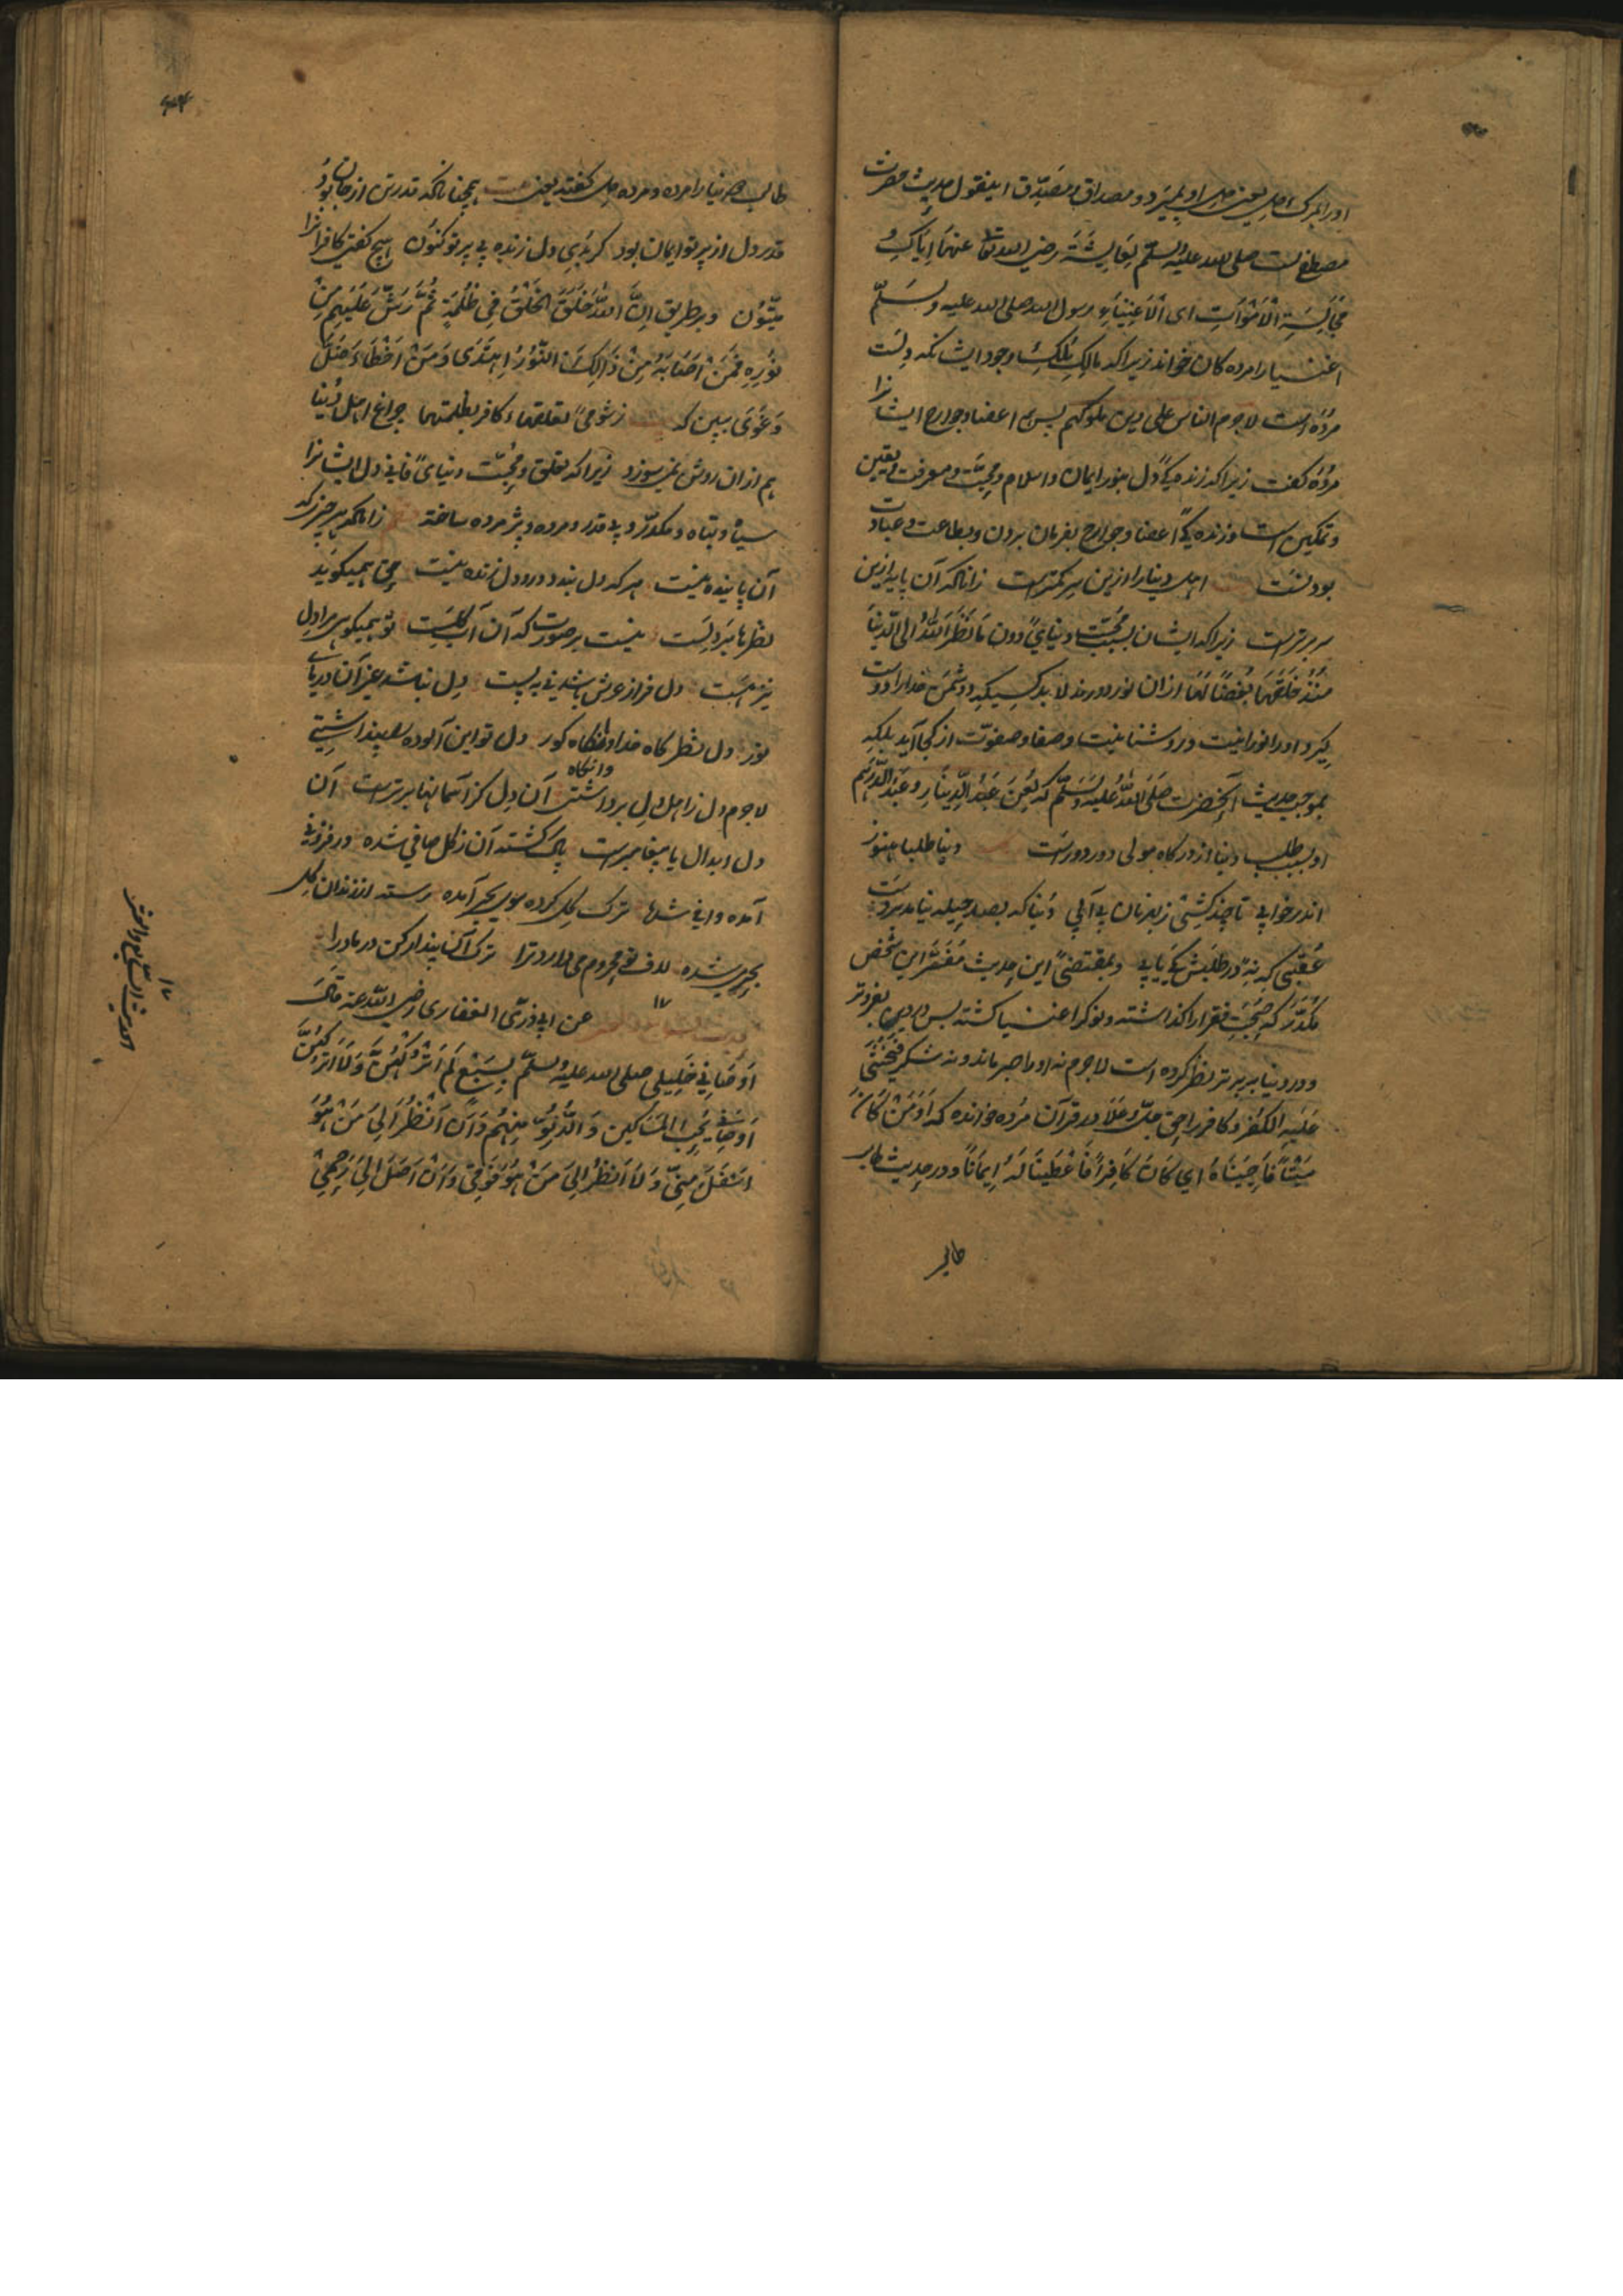 اورا بمرک دل یعنی دل او بمیرد و مصداق و مصدّق اینقول حدیث حضرت
مصطفی است صلی الله علیه وسلّم بعایشَة رضی الله تعا عنها اِیّاکِ وَ
مُجَالِسَةِ الْاَمْوَاتِ ای الْاَغنِیَاءِ رسول الله صلی الله علیه وسَلّمَ
اغنیا را مرده کان خواند زیراکه مالکِ مُلکِ وجود ایشانکه دلست
مرده است لاجرم الناس علی دین ملوکهم پس اعضا و جوارح ایشانرا
مُرده کفت زیراکه زنده کیِ دل بنور ایمان و اسلام و محبّت و معرفت و یقین
و تمکین است و زنده کیِ اعضا و جوارح بفرمان بردن و بطاعت و عبادت
بودنست اهل دینار را وزین سر کمتر است زانکه آن پایه ازین
سر برتر است زیراکه ایشان بسبب محبّت دنیای دون مَا نَظَرَ اللّهُ الی الدّنیَا
مُنذُ خَلَقَهَا بُغضًا لَهَا ازان نور دورند لابد کسیکه دشمن خدا را دوست
کیرد او را نورانیت و روشنائیت و صفا و صفوّت از کجا آید بلکه
بموجب حدیث آنحضرت صَلّی اللّهُ علیه وَسَلّم که لُعِنَ عَبدُ الدّینَارِ وعَبدُ الدّرهَم
او بسبب طلب دنیا از درکاه مولی دور دورست دنیا طلبا هنوز
اندر خوابی تا چند کشتی زبهر نان بی آبی دُنیا که بصد حیله نیامد بدست
عُقبی که نهٔ در طلبش کی یابی و بمقتضیِ این حدیث مُفتقر این شخص
مکدّر که صُحبَتِ فقرا را کذاشته و نوکر اغنیا کشته پس در دین بفروتر
و در دنیا به برتر نظر کرده است لاجرم نه او را صبر ماند و نه شکر فیُخشَی
عَلَیهِ الکُفر و کافر را حق جلّ وعَلا در قرآن مُرده خوانده که اَوَمَنْ کَانَ
مَیْتًا فَاَحیَینَاهُ اَی کَانَ کَافِرًا فَاَعْطَینَا لَهُ اِیمَانًا و در حدیث طالب
طالب
طالب دنیا را مرده و مرده دل کفته یعنی همچنانکه قدر تن از جان بود
قدر دل از پرتو ایمان بود کر بُدی دل زنده بی پرتو کنون هیچ کفتی کافرانرا
میّتون و بر طریق اِنّ اللّهَ خَلَقَ الخَلْقَ فِی ظُلمَةٍ ثُمّ رَشّ عَلَیهِم مِن
نُورِهِ فَمَن اَصَابَهُ مِنْ ذَالِکَ النّورُ اِهتَدَی وَمَن اَخْطَاءَ ضَلّ
وَغَوَی ببین که زشومیِ تعلقها کافر بظلمتها چراغ اهل دُنیا
هم ازان روشن نمی سوزد زیراکه تعلق و محبّت دنیایِ فانی دل ایشانرا
سیاه و تباه و مکدّر و بی قدر و مرده و پژمرده ساخته زانکه هر چیز که
آن پاینده نیست هر که دل بندد درو دل زنده نیست حق همیکوید
نظر ما بر دلست نیست بر صورت که آن آب و کلست تو همیکوی مرا دل
نیز هست دل فراز عرش باشد نی به پست دل نباشد غیر آن دریای
نور دل نظرکاه خدا وانکاه کور دل تو این آلوده را پنداشتی
وانکاه
لاجرم دل زاهل دل برداشتی آن دلی کز آسمانها برتر است آن
دل ابدال یا پیغامبرست پاک کشته آن زکل صافی شده در فزونی
آمده وافی شده ترک کل کرده سوی بحر آمده رسته از زندان کل
بحری شده لاف تو محروم می دارد ترا ترک آن پندار کن در ما درا
۱۷ عن ابی ذرّ الغفاری رضی الله عنه قَالَ
اَوصَانِی خَلِیلِی صلی الله علیه وسلّم بِسَبْعٍ لَم اَتْرُکْهُنّ وَلَا اَترُکُهُنّ
اَوصَانِی بِحُبّ المَسَاکِینِ وَالدّنُوّ مِنهُم وَاَن اَنْظُرَ اِلَی مَنْ هُوَ
اَسْفَلَ مِنّی وَلَا اَنظُرُ اِلَی مَنْ هُوَ فَوقِی وَاَنْ اَصِلَ اِلَی رَحِمِی
۱۷
الحدیث السّابع والعشر